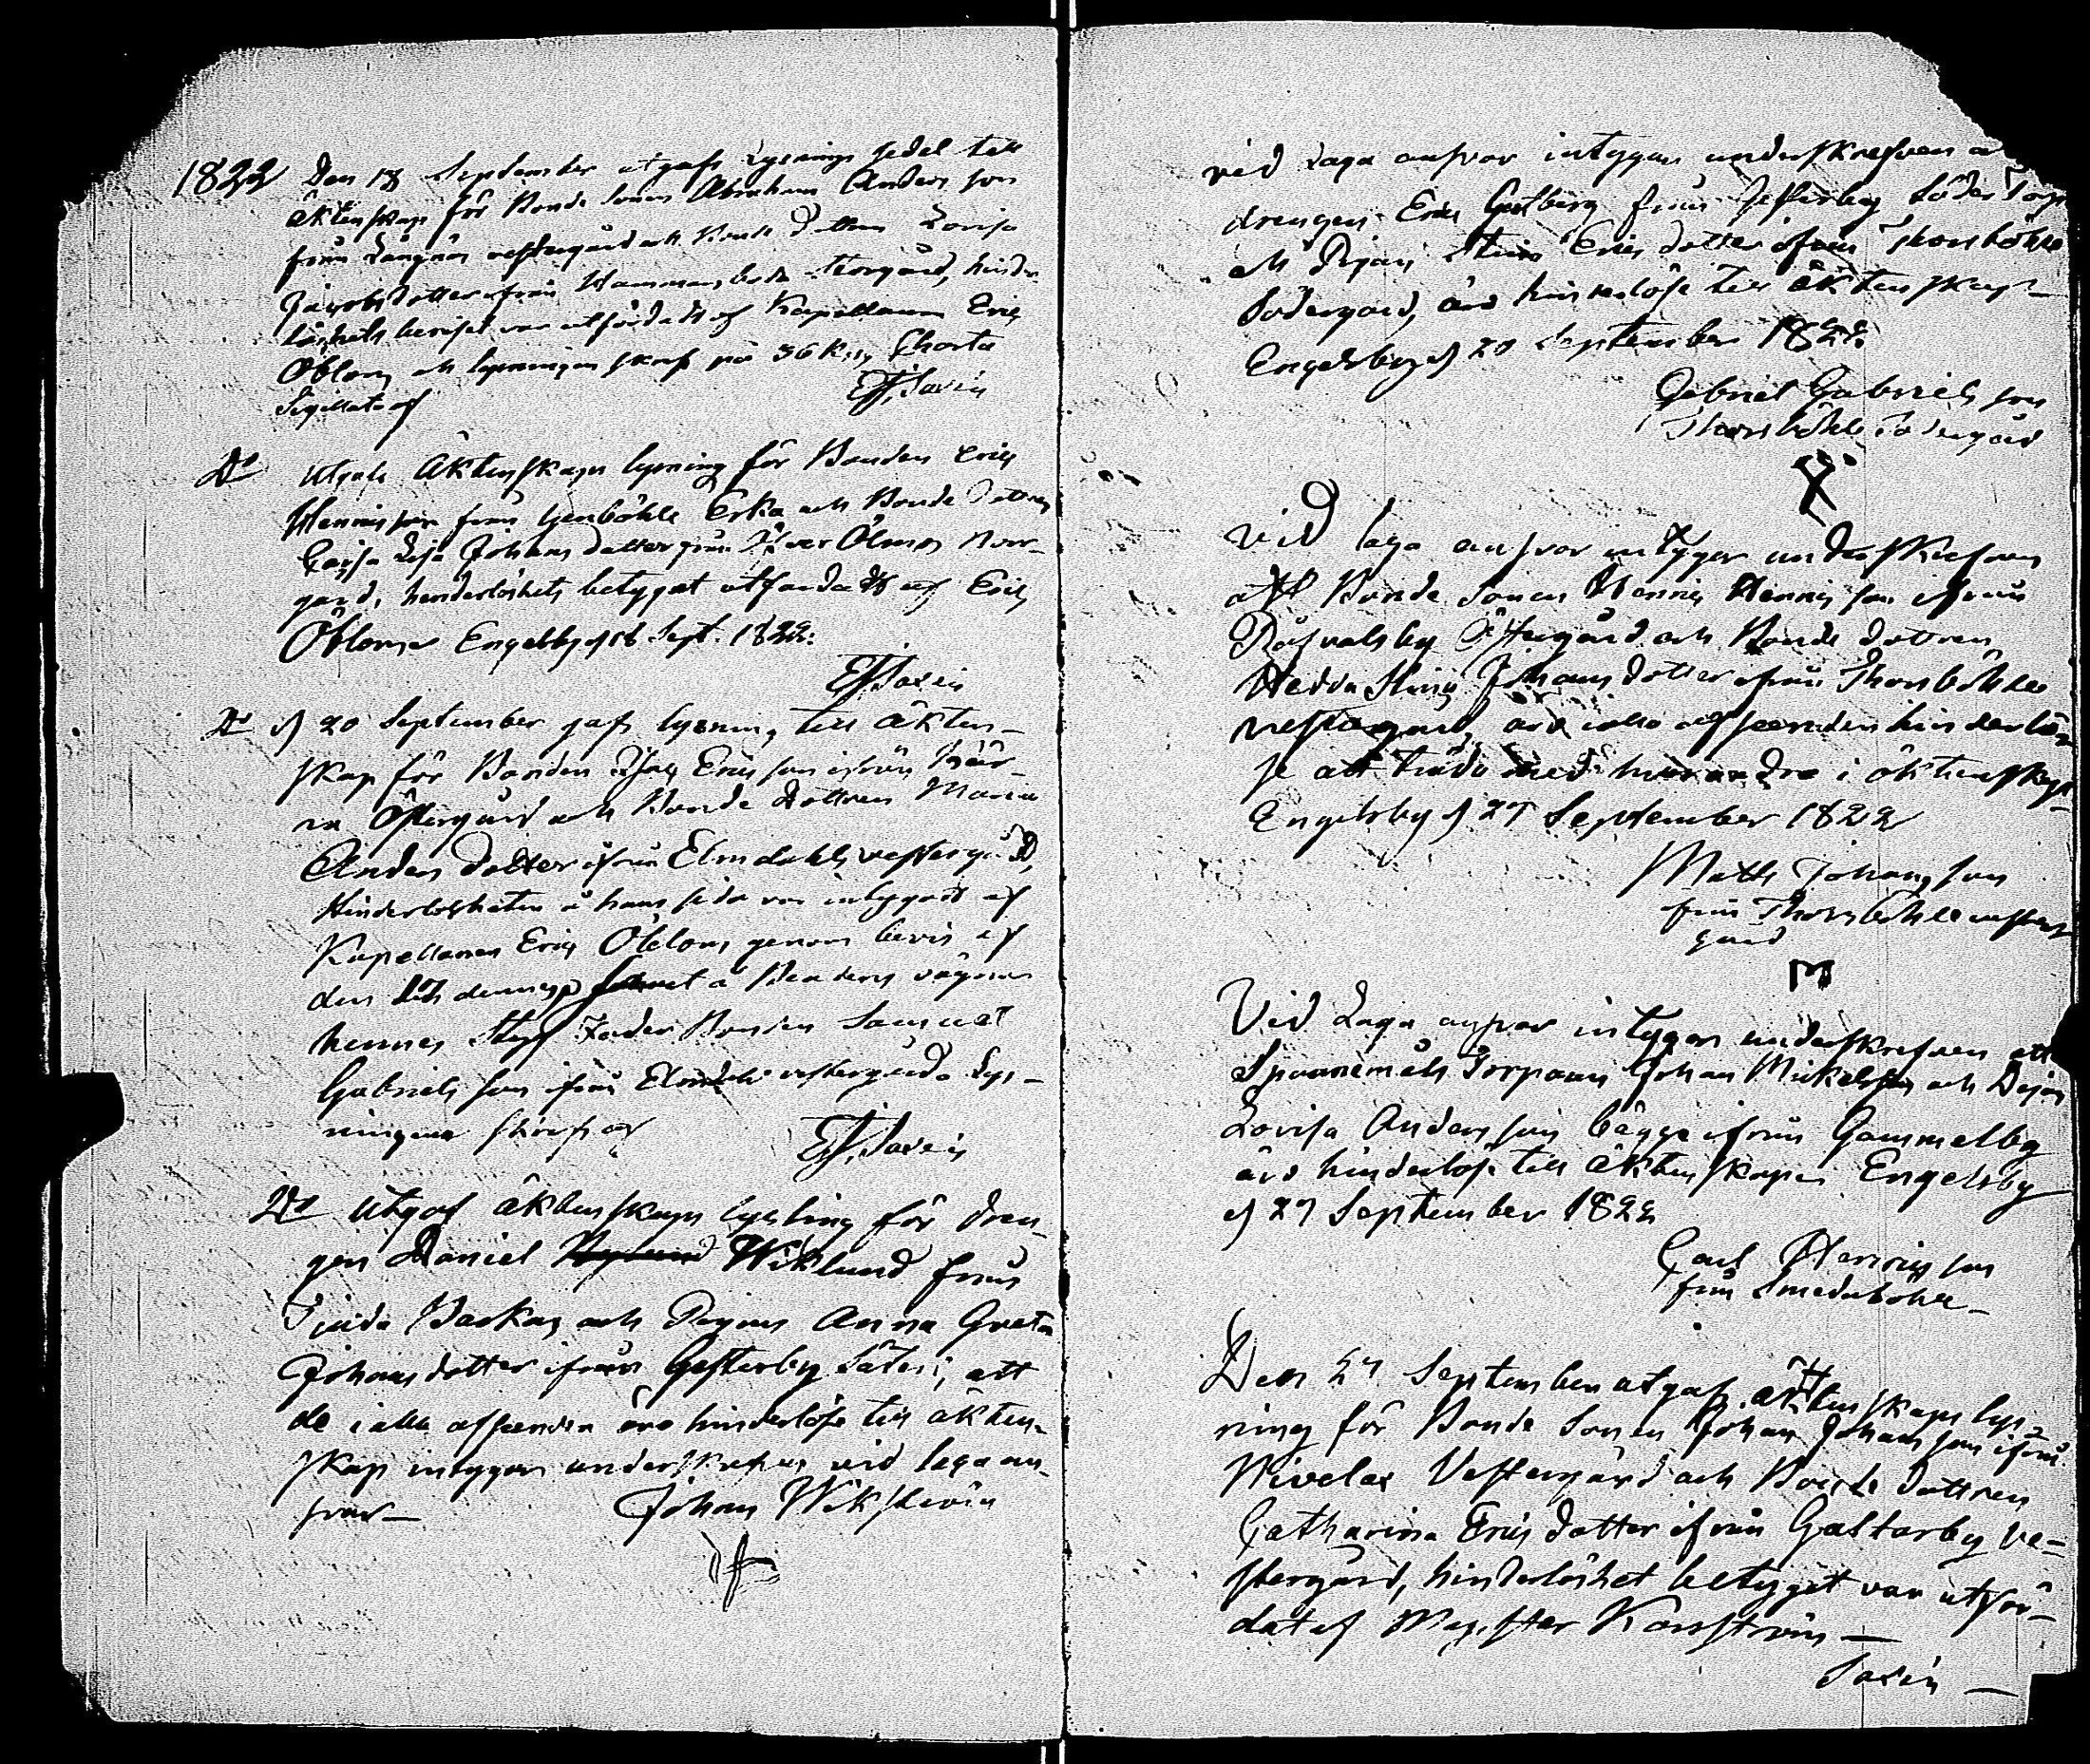 1822 Den 18 September utgafs Lysnings sedel till
äktenskap för Bonde Sonen Abraham Anders son
från Långnäs vestergård och Bonde dottren Lovisa
Jacobs dotter från Hammarsboda Norrgård, hinder-
löshets beviset var utfärdadt af Kapellanen Eric
Öblom och lysningen skref på 36 K Charta
Sigillata af
EJ Saxén
Do utgafs Äktenskaps lysning för Bonden Eric
Hennicsson från Genböhle Erka och Bonde dottren
Cajsa Lisa Johans dotter från Öfver Ölmos Norr-
gård, hinderlöshets betyget utfärdadt af Eric
Öblom Engelsby d 18 Sept. 1822.
EJ Saxén
Do d 20 September gafs lysning till äkten-
skap för Bonden Isac Erics son ifrån Kär-
ra Östergård och Bonde Dottren Maria
Anders dotter ifrån Elmdahls vestergård,
Hinderlösheten å hans sida var intygadt af
Kapellanen Eric Öblom genom bevis af
den dennes å Brudens vägnar
hennes Styf Fader Bonden Samuel
Gabriels son ifrån Elmdahls vestergård. Lys-
ningen skref af
EJ Saxén
Do Utgaf äktenskaps lysning för dren-
gen Daniel Wiklund från
Backas och Pigan Anna Greta
Johansdotter ifrån Gesterby Säteri, att
de i alla afseenden äro hinderlöse till äkten-
skap intygar underskrefven vid laga an-
svar— Johan Wikstrøm
vid Laga ansvar intygar underskrefven at
drengen Eric Gestberg från Gesterby Söder Torp
och Pigan Stina Erics dotter ifrån Thorsböhle
Södergård, äro hinderlöse till äktenskap—
Engelsby d 20 September 1822.
Gabriel Gabriels son
Thorsböhle Södergård
Vid laga ansvar intygar underskrefven
att Bonde Sonen Hennic Hennics son ifrån
Räfvalsby Östergård och Bonde dottren
Hedda Stina Johans dotter ifrån Thorsböhle
vestergård, äro i alla afseenden hinderlö-
se att träda med hvarandra i äktenskap
Engelsby d 27 September 1822
Matts Johans son
från Thorsböhle vester
gård
M
Vid Laga ansvar intygar underskrefven att
Spannemåls Torparn Johan Mickelsson och Pigan
Lovisa Anders bägge ifrån Gammelby
äro hinderlöse till äktenskap Engelsby
d 27 September 1822
Carl Henrics son
från Smedsböhle—
Den 27 September utgafs äktenskaps lys-
ning för Bonde Sonen Johan Johans son ifrån
Nivelax Vestergård och Bonde dottren
Catharina Erics dotter ifrån Galtarby ve-
stergård, hinderlöshet betyget var utfär-
dat af Magister Karsström—
Saxén—